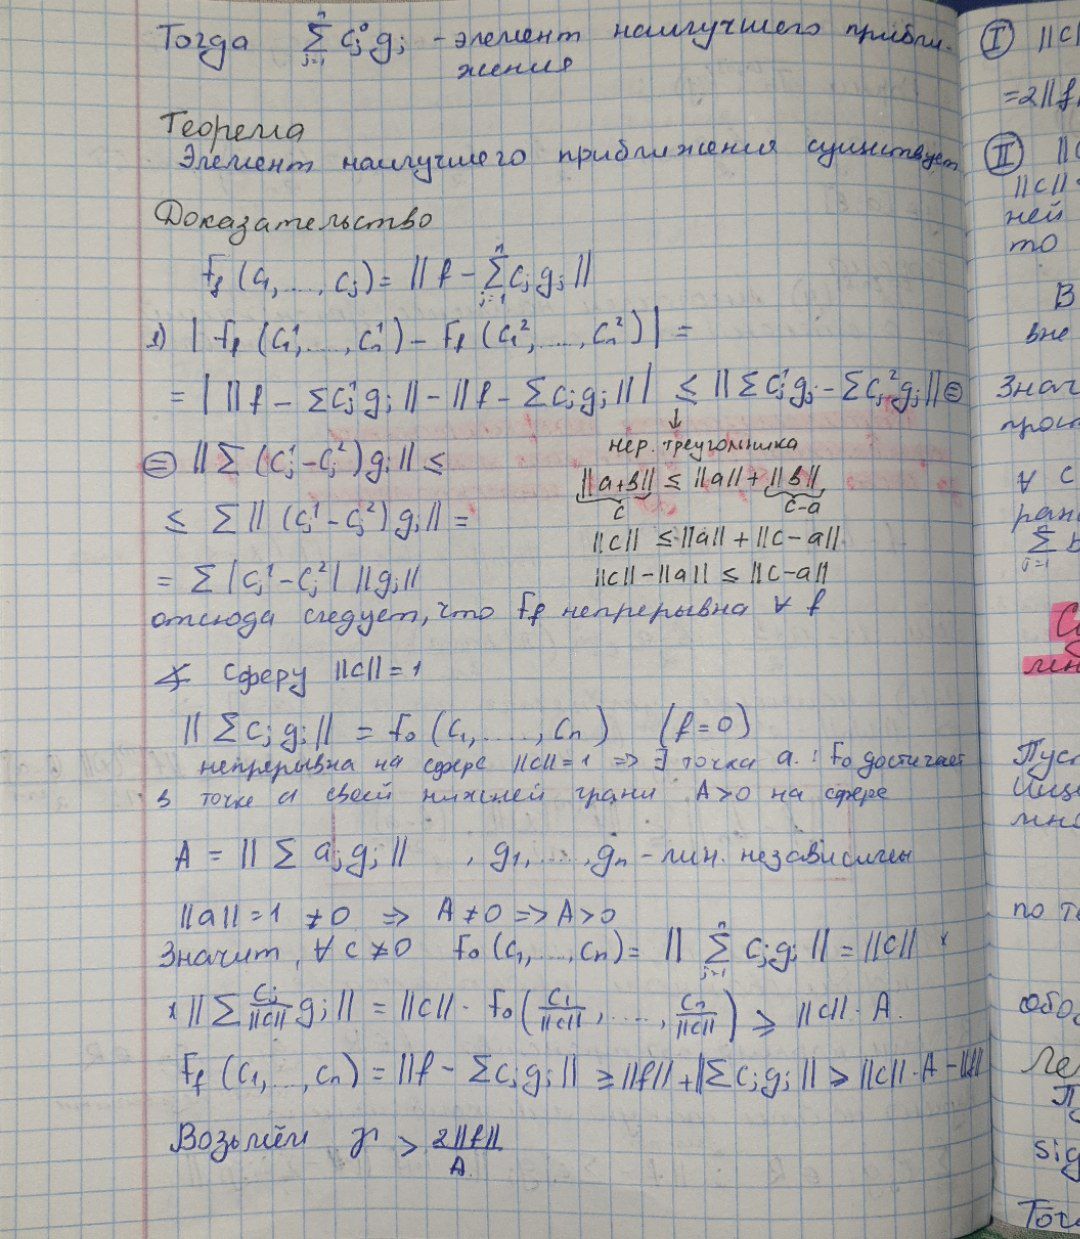 Тогда $\sum_{j=1}^{n} c_j^0 g_j$ - элемент наилучшего прибли-
жения
Теорема
Элемент наилучшего приближения существует
Доказательство
$F_f(c_1, ..., c_j) = \|f - \sum_{j=1}^{n} c_j g_j\|$
1) $|F_f(c_1^1, ..., c_n^1) - F_f(c_1^2, ..., c_n^2)| =$
$= | \|f - \sum c_j^1 g_j\| - \|f - \sum c_j g_j\| | \leq \|\sum c_j^1 g_j - \sum c_j^2 g_j\|$ ⊜
↓
нер. треугольника
⊜ $\|\sum (c_j^1 - c_j^2) g_j\| \leq$
$\underbrace{\|a+b\|}_{c} \leq \|a\| + \underbrace{\|b\|}_{c-a}$
$\leq \sum \|(c_j^1 - c_j^2) g_j\| =$
$\|c\| \leq \|a\| + \|c-a\|$
$= \sum |c_j^1 - c_j^2| \|g_j\|$
$\|c\| - \|a\| \leq \|c-a\|$
отсюда следует, что $F_f$ непрерывна ∀ f
∢ сферу $\|c\| = 1$
$\|\sum c_j g_j\| = F_0(c_1, ..., c_n)$ (f = 0)
непрерывна на сфере $\|c\| = 1$ => ∃ точка a : $F_0$ достигает
в точке a своей нижней грани A>0 на сфере
$A = \|\sum a_j g_j\|$ , $g_1, ..., g_n$ - лин. независимы
$\|a\| = 1 \neq 0$ => $A \neq 0$ => $A > 0$
Значит, ∀ c ≠ 0 $F_0(c_1, ..., c_n) = \|\sum_{j=1}^{n} c_j g_j\| = \|c\|$ ×
× $\|\sum \frac{c_j}{\|c\|} g_j\| = \|c\| \cdot F_0(\frac{c_1}{\|c\|}, ..., \frac{c_n}{\|c\|}) \geq \|c\| \cdot A.$
$F_f(c_1, ..., c_n) = \|f - \sum c_j g_j\| \geq \|f\| + \|\sum c_j g_j\| \geq \|c\| \cdot A - \|f\|$
Возьмём $> \frac{2\|f\|}{A}$
Ⅰ ||c|
=2||f
Ⅱ ||
||c||
ней
то
В
вне
Знач
прост
∀ c
Пуст
по т
обоз
Ле
П
sig
Точ